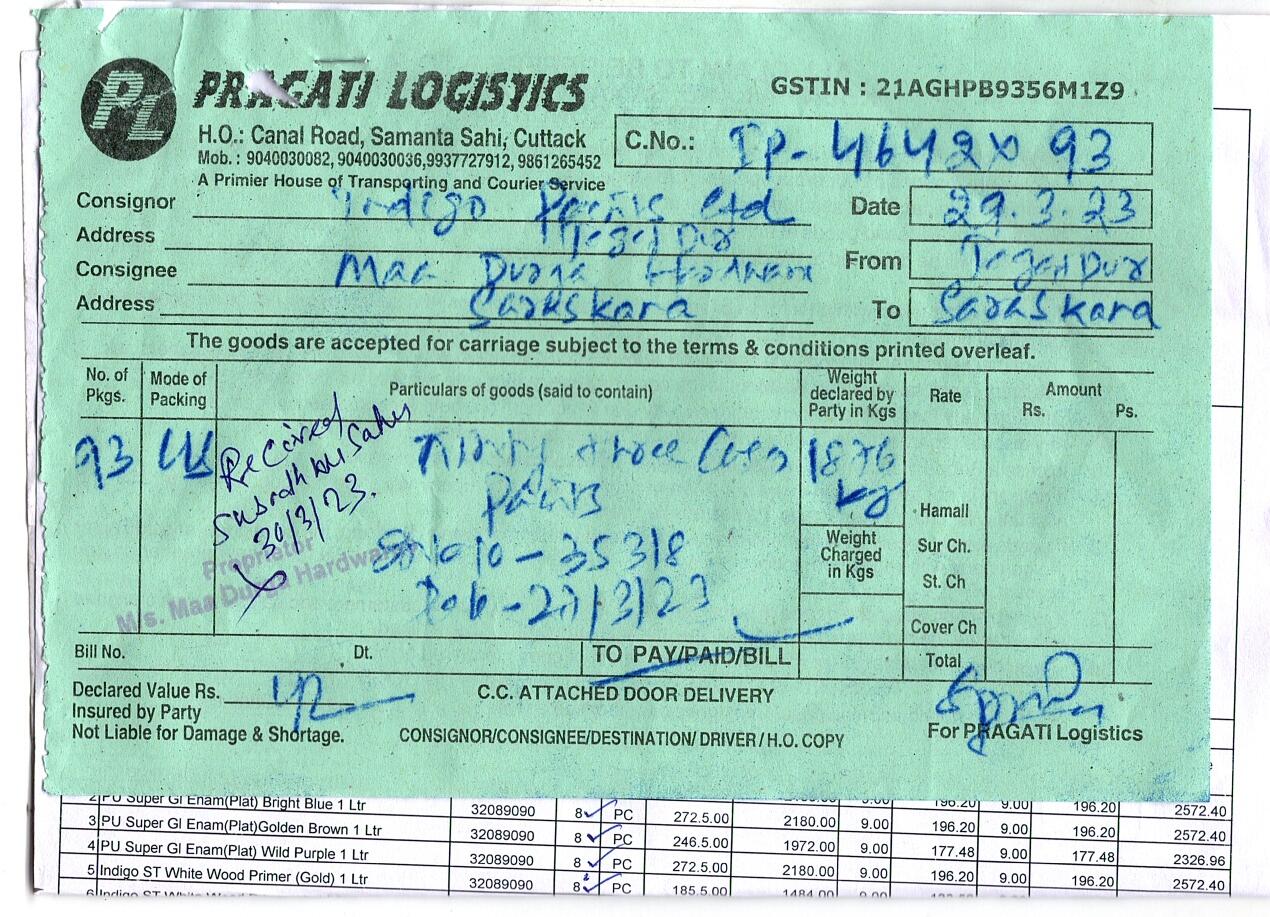 PL
PRAGATI LOGISTICS
GSTIN : 21AGHPB9356M1Z9
H.O.: Canal Road, Samanta Sahi, Cuttack
Mob. : 9040030082, 9040030036,9937727912, 9861265452
A Primier House of Transporting and Courier Service
C.No.: IP- 4642 x 93
Consignor Indigo Paints Ltd
Date 29.3.23
Address
Consignee Maa Durga
From
Address Saraskara
To Saraskara
The goods are accepted for carriage subject to the terms & conditions printed overleaf.
No. of Pkgs. Mode of Packing Particulars of goods (said to contain) Weight declared by Party in Kgs Rate Amount Rs. Ps.
93 Ninety three 1876 kg
Paints
Received
30/3/23.
Proprietor
M/s. Maa Durga Hardware
- 35318
/3/23
Weight Charged in Kgs
Hamall
Sur Ch.
St. Ch
Cover Ch
Bill No. Dt. TO PAY/PAID/BILL Total
Declared Value Rs.
C.C. ATTACHED DOOR DELIVERY
Insured by Party
Not Liable for Damage & Shortage.
CONSIGNOR/CONSIGNEE/DESTINATION/ DRIVER / H.O. COPY
For PRAGATI Logistics
2 PU Super Gl Enam(Plat) Bright Blue 1 Ltr 32089090 8 PC 272.5.00 2180.00 9.00 196.20 9.00 196.20 2572.40
3 PU Super Gl Enam(Plat)Golden Brown 1 Ltr 32089090 8 PC 246.5.00 1972.00 9.00 196.20 9.00 196.20 2572.40
4 PU Super Gl Enam(Plat) Wild Purple 1 Ltr 32089090 8 PC 272.5.00 2180.00 9.00 177.48 9.00 177.48 2326.96
5 Indigo ST White Wood Primer (Gold) 1 Ltr 32089090 8 PC 185.5.00 1484.00 9.00 196.20 9.00 196.20 2572.40